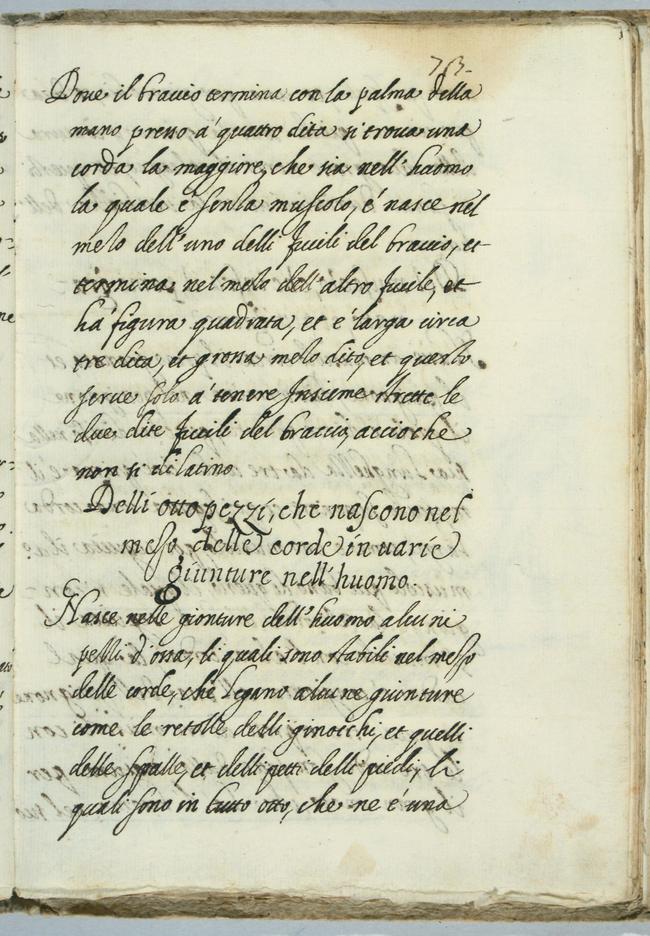 763.
Doue il braccio termina con la palma della
mano presso à quattro dita si troua una
corda la maggiore, che sia nell' huomo
la quale è senza muscolo, é nasce nel
mezo dell' uno delli fucili del braccio, et
termina nel mezo dell' altro fucile, et
hà figura quadrata, et é larga circa
tre dita, et grossa mezo dito, et questo
serue solo à tenere Insieme strette le
due dite fucili del braccio, accioche
non si dilatino
Delli otto pezzi, che nascono nel
messo delle corde in uarie
giunture nell' huomo.
Nasce nelle gionture dell' huomo alcuni
pezzi d' ossa, li quali sono stabili nel messo
delle corde, che Legano alcune giunture
come le rotelle delli ginocchi, et quelli
delle spalle, et delli petti delli piedi, li
quali sono in tutto otto, che ne é una